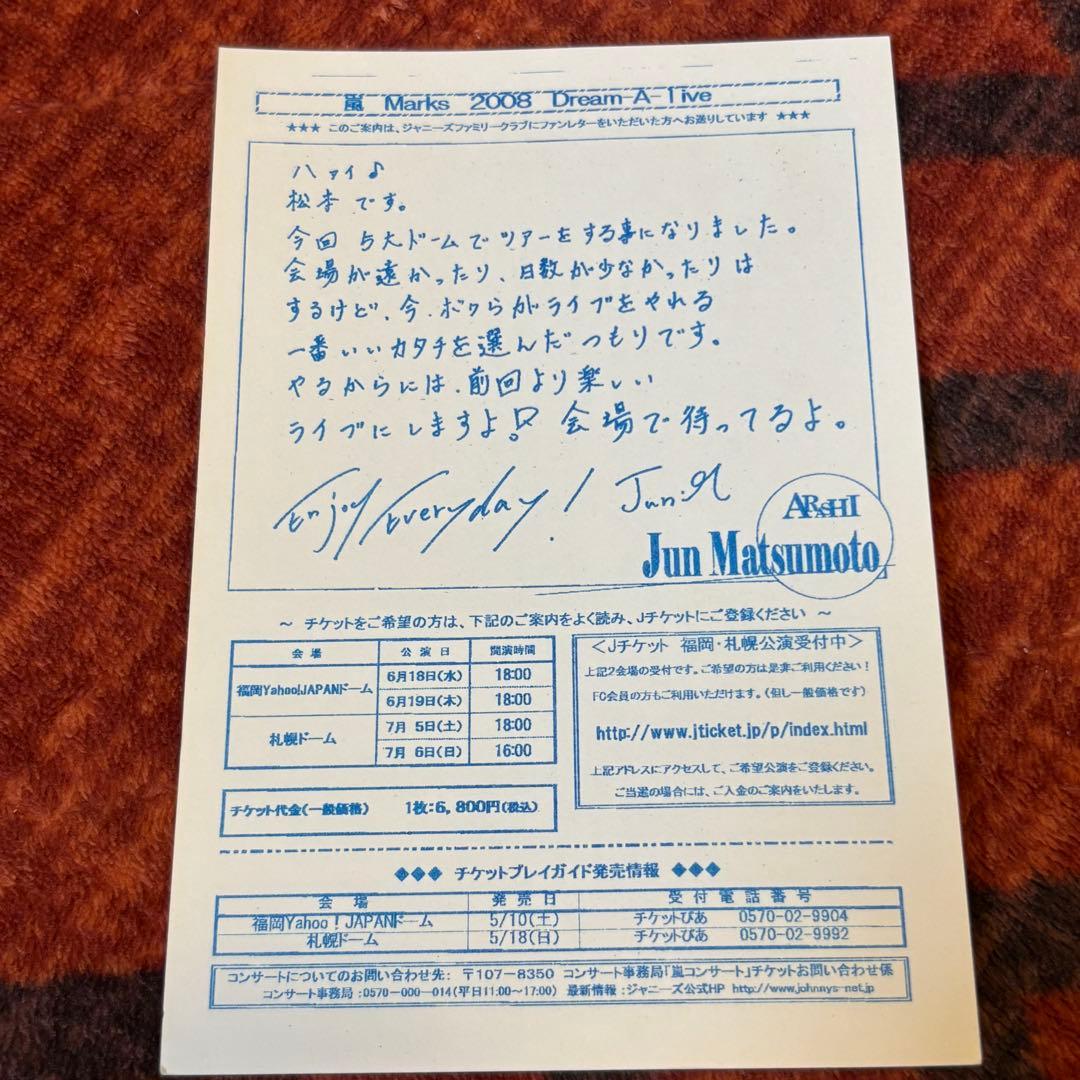 嵐 Marks 2008 Dream-A-live
★★★ このご案内は、ジャニーズファミリークラブにファンレターをいただいた方へお送りしています ★★★
ハァイ♪
松本です。
今回 5大ドームでツアーをする事になりました。
会場が遠かったり、日数が少なかったりは
するけど、今、ボクらがライブをやれる
一番いいカタチを選んだつもりです。
やるからには、前回より楽しい
ライブにしますよ!? 会場で待ってるよ。
Enjoy Everyday! Jun.M
ARASHI
Jun Matsumoto
~ チケットをご希望の方は、下記のご案内をよく読み、Jチケットにご登録ください ~
会場 公演日 開演時間
福岡Yahoo!JAPANドーム 6月18日(水) 18:00
6月19日(木) 18:00
札幌ドーム 7月 5日(土) 18:00
7月 6日(日) 16:00
チケット代金(一般価格) 1枚:6,800円(税込)
<Jチケット 福岡・札幌公演受付中>
上記2会場の受付です。ご希望の方は是非ご利用ください!
FC会員の方もご利用いただけます。(但し一般価格です)
http://www.jticket.jp/p/index.html
上記アドレスにアクセスして、ご希望公演をご登録ください。
ご当選の場合には、ご入金のご案内をいたします。
◆◆◆ チケットプレイガイド発売情報 ◆◆◆
会場 発売日 受付電話番号
福岡Yahoo!JAPANドーム 5/10(土) チケットぴあ 0570-02-9904
札幌ドーム 5/18(日) チケットぴあ 0570-02-9992
コンサートについてのお問い合わせ先: 〒107-8350 コンサート事務局「嵐コンサート」チケットお問い合わせ係
コンサート事務局:0570-000-014(平日11:00~17:00) 最新情報:ジャニーズ公式HP http://www.johnnys-net.jp